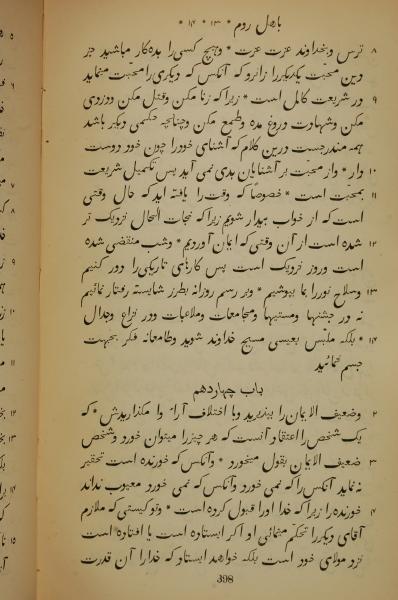 باهل روم * ۱۳ * ۱۴ *
۸ ترس وبخداوند عزت عزت * وهیچ کسی را بدهکار مباشید جز
دین محبّت یکدیگر را زانرو که آنکس که دیگری را محبّت مینماید
۹ در شریعت کامل است * زیرا که زنا مکن وقتل مکن ودزدی
مکن وشهادت دروغ مده وطمع مکن وچنانچه حکمی دیگر باشد
همه مندرجست درین کلام که آشنای خود را چون خود دوست
۱۰ دار * واز محبّت بر آشنایان بدی نمی آید پس تکمیل شریعت
۱۱ بمحبّت است * خصوصًا که وقت را یافته اید که حال وقتی
است که از خواب بیدار شویم زیرا که نجات الحال نزدیک تر
۱۲ شده است از آن وقتی که ایمان آوردیم * وشب منقضی شده
است وروز نزدیک است پس کارهای تاریکی را دور کنیم
۱۳ وسلاح نور را بما بپوشیم * وبر رسم روزانه بطرز شایسته رفتار نمائیم
نه در جشنها ومستیها ومجامعات وملاعبات ودر نزاع وجدال
۱۴ * بلکه ملبّس بعیسی مسیح خداوند شوید وطامعانه فکر بجهت
جسم منمائید
باب چهاردهم
۲ وضعیف الایمان را بپذیرید وبا اختلاف آراء وا مگذاریدش * که
یک شخص را اعتقاد آنست که هر چیز را میتوان خورد وشخص
۳ ضعیف الایمان بقول میخورد * وآنکس که خورنده است تحقیر
نه نماید آنکس را که نمی خورد وآنکس که نمی خورد معیوب نداند
۴ خورنده را زیرا که خدا اورا قبول کرده است * وتو کیستی که ملازم
آقای دیگر را تحکّم مینمائی او اگر ایستاده است یا افتاده است
نزد مولای خود است بلکه خواهد ایستاد که خدا را آن قدرت
398